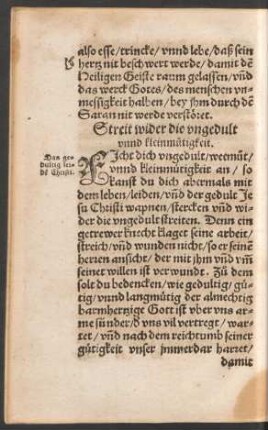 also esse/trincke/vnnd lebe/daß sein
hertz nit beschwert werde/damit dē
Heiligen Geiste raum gelassen/vñd
das werck Gotes/des menschen vn-
messigkeit halben/bey jhm durch dē
Satan nit werde verstöret.
Streit wider die vngedult
vnnd kleinmütigkeit.
Das ge-
dultig lei-
dē Christi.
FIcht dich vngedult/weemůt/
vnnd kleinmütigkeit an/so
kanst du dich abermals mit
dem leben/leiden/vñd der gedult Je
su Christi wapnen/stercken vñd wi-
der die vngedult streiten. Denn ein
getrewer knecht klaget seine arbeit/
streich/vñd wunden nicht/so er seinē
herren ansicht/der mit jhm vñd vm̃
seinet willen ist verwundt. Zů dem
solt du bedencken/wie gedultig/gü-
tig/vnnd langmütig der almechtig
barmhertzige Gott ist vber vns ar-
me sünder/d vns vil vertregt/war-
tet/vñd nach dem reichtumb seiner
gütigkeit vnser jmmerdar harret/
damit